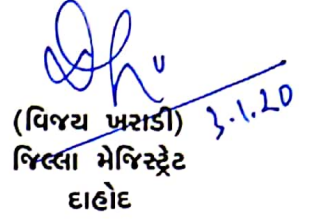 3.1.20
(વિજય ખરાડી)
જિલ્લા મેજિસ્ટ્રેટ
દાહોદ